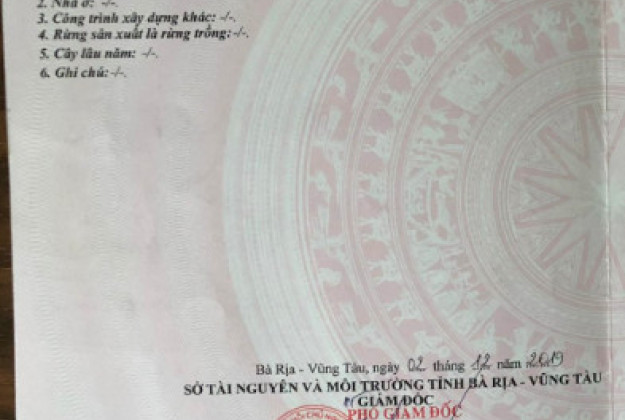 2. Nhà ở: -/-.
3. Công trình xây dựng khác: -/-.
4. Rừng sản xuất là rừng trồng: -/-.
5. Cây lâu năm: -/-.
6. Ghi chú: -/-.
Bà Rịa - Vũng Tàu, ngày 02 tháng 12 năm 2019
SỞ TÀI NGUYÊN VÀ MÔI TRƯỜNG TỈNH BÀ RỊA - VŨNG TÀU
GIÁM ĐỐC
PHÓ GIÁM ĐỐC